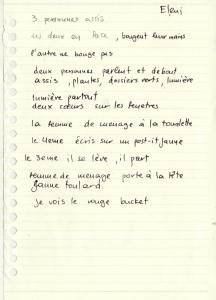 Eleni
3 personnes assis
les deux en face, bougent leur mains
l'autre ne bouge pas
deux personnes parlent et debout
assis, plantes, dossiers verts, lumière
lumière partout
deux cœurs sur les fenetres
la femme de menage à la toilette
le 4eme écris sur un post-it jaune
le 3eme il se lève, il part
femme de menage porte à la tête
jaune foulard
je vois le rouge bucket